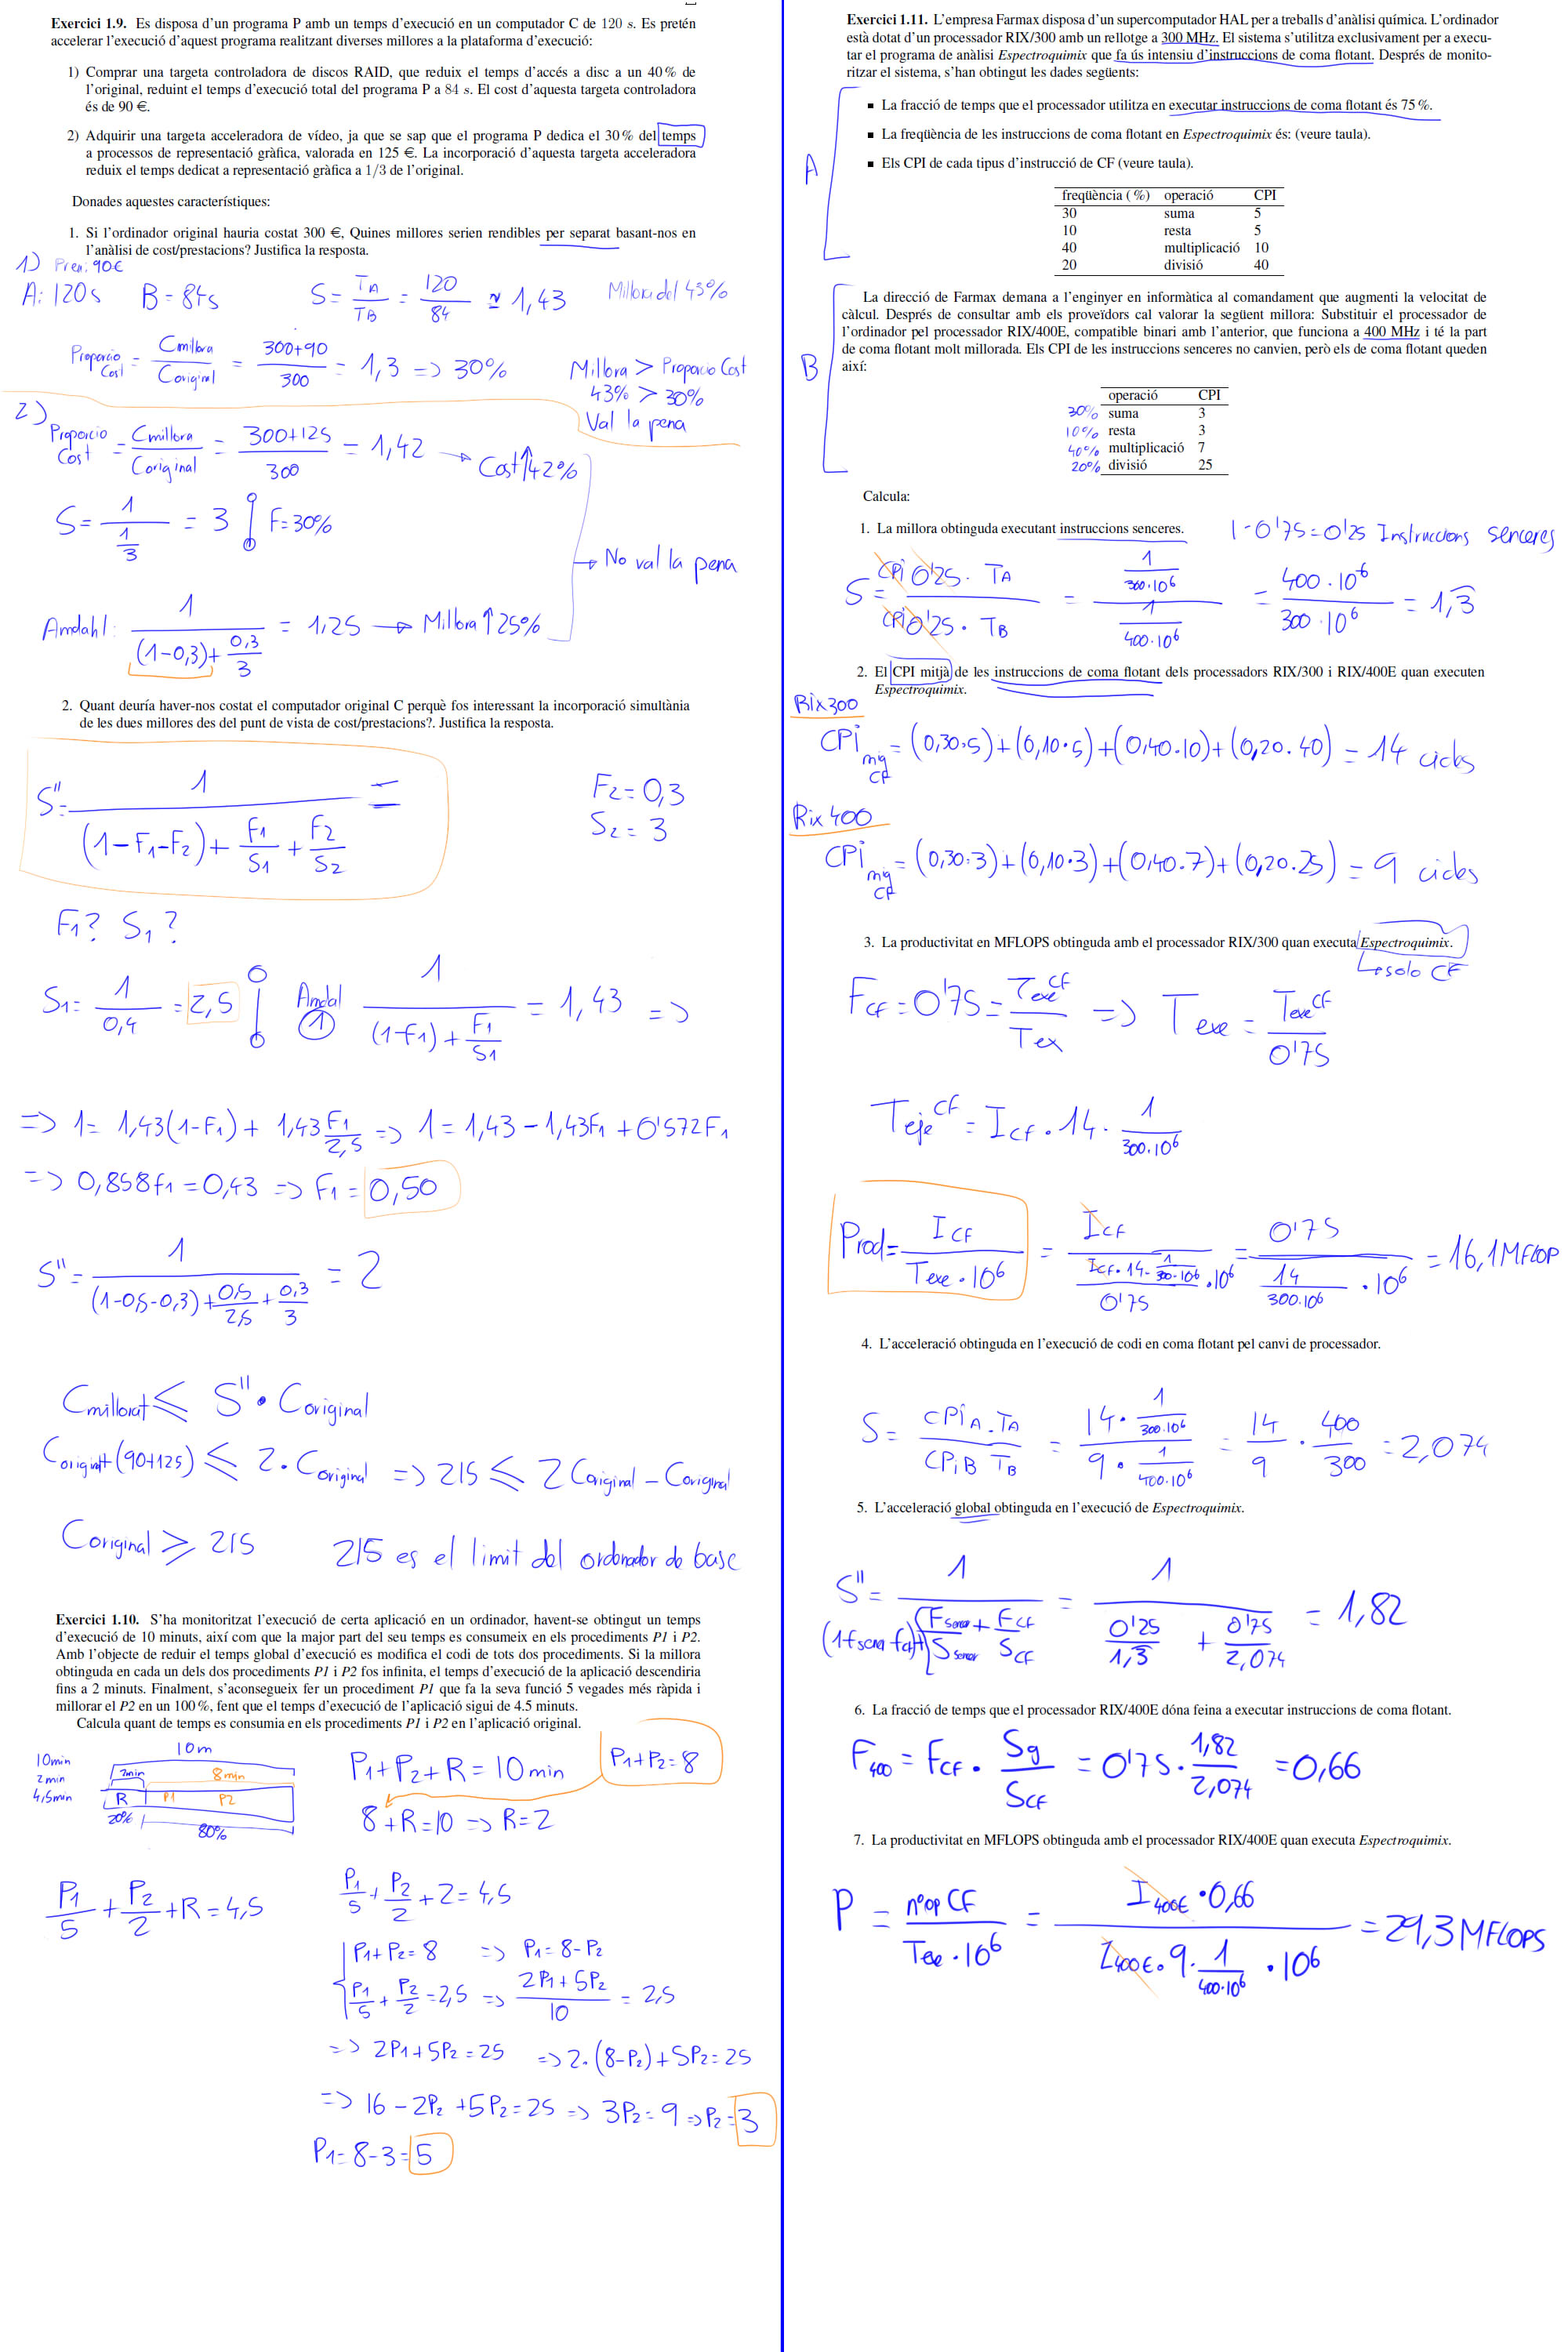 Exercici 1.9. Es disposa d'un programa P amb un temps d'execució en un computador C de 120 s. Es pretén
accelerar l'execució d'aquest programa realitzant diverses millores a la plataforma d'execució:
1) Comprar una targeta controladora de discos RAID, que reduix el temps d'accés a disc a un 40 % de
l'original, reduint el temps d'execució total del programa P a 84 s. El cost d'aquesta targeta controladora
és de 90 €.
2) Adquirir una targeta acceleradora de vídeo, ja que se sap que el programa P dedica el 30 % del temps
a processos de representació gràfica, valorada en 125 €. La incorporació d'aquesta targeta acceleradora
reduix el temps dedicat a representació gràfica a 1/3 de l'original.
Donades aquestes característiques:
1. Si l'ordinador original hauria costat 300 €, Quines millores serien rendibles per separat basant-nos en
l'anàlisi de cost/prestacions? Justifica la resposta.
1) Preu: 90€
A: 120s B = 84s S = TA/TB = 120/84 ≃ 1,43 Millora del 43%
Proporcio Cost = Cmillora/Coriginal = 300+90/300 = 1,3 => 30% Millora > Proporcio Cost
43% > 30%
Val la pena
2) Proporcio Cost = Cmillora/Coriginal = 300+125/300 = 1,42 → Cost ↑ 42%
S = 1/(1/3) = 3 F = 30%
→ No val la pena
Amdahl: 1/((1-0,3)+0,3/3) = 1,25 → Millora ↑ 25%
2. Quant deuría haver-nos costat el computador original C perquè fos interessant la incorporació simultània
de les dues millores des del punt de vista de cost/prestacions?. Justifica la resposta.
S" = 1/((1-F1-F2)+F1/S1+F2/S2) =
F2 = 0,3
S2 = 3
F1? S1?
S1 = 1/0,4 = 2,5 Amdal 1 1/((1-f1)+F1/S1) = 1,43 =>
=> 1 = 1,43(1-F1) + 1,43 F1/2,5 => 1 = 1,43 - 1,43F1 + 0'572F1
=> 0,858f1 = 0,43 => F1 = 0,50
S" = 1/((1-0,5-0,3)+0,5/2,5+0,3/3) = 2
Cmillorat ≤ S" · Coriginal
Coriginal+(90+125) ≤ 2 · Coriginal => 215 ≤ 2Coriginal - Coriginal
Coriginal ≥ 215 215 es el limit del ordenador de base
Exercici 1.10. S'ha monitoritzat l'execució de certa aplicació en un ordinador, havent-se obtingut un temps
d'execució de 10 minuts, així com que la major part del seu temps es consumeix en els procediments P1 i P2.
Amb l'objecte de reduir el temps global d'execució es modifica el codi de tots dos procediments. Si la millora
obtinguda en cada un dels dos procediments P1 i P2 fos infinita, el temps d'execució de la aplicació descendiria
fins a 2 minuts. Finalment, s'aconsegueix fer un procediment P1 que fa la seva funció 5 vegades més ràpida i
millorar el P2 en un 100 %, fent que el temps d'execució de l'aplicació sigui de 4.5 minuts.
Calcula quant de temps es consumia en els procediments P1 i P2 en l'aplicació original.
10min
2min
4,5min
10m
2min 8min
R P1 P2
20% 80%
P1+P2+R = 10min P1+P2 = 8
8+R=10 => R=2
P1/5 + P2/2 + R = 4,5
P1/5 + P2/2 + 2 = 4,5
P1+P2 = 8 => P1 = 8-P2
P1/5 + P2/2 = 2,5 => 2P1+5P2/10 = 2,5
=> 2P1+5P2 = 25 => 2·(8-P2)+5P2 = 25
=> 16-2P2+5P2 = 25 => 3P2 = 9 => P2 = 3
P1 = 8-3 = 5
Exercici 1.11. L'empresa Farmax disposa d'un supercomputador HAL per a treballs d'anàlisi química. L'ordinador
està dotat d'un processador RIX/300 amb un rellotge a 300 MHz. El sistema s'utilitza exclusivament per a execu-
tar el programa de anàlisi Espectroquimix que fa ús intensiu d'instruccions de coma flotant. Després de monito-
ritzar el sistema, s'han obtingut les dades següents:
A
▪ La fracció de temps que el processador utilitza en executar instruccions de coma flotant és 75 %.
▪ La freqüència de les instruccions de coma flotant en Espectroquimix és: (veure taula).
▪ Els CPI de cada tipus d'instrucció de CF (veure taula).
freqüència ( %) operació CPI
30 suma 5
10 resta 5
40 multiplicació 10
20 divisió 40
B
La direcció de Farmax demana a l'enginyer en informàtica al comandament que augmenti la velocitat de
càlcul. Després de consultar amb els proveïdors cal valorar la següent millora: Substituir el processador de
l'ordinador pel processador RIX/400E, compatible binari amb l'anterior, que funciona a 400 MHz i té la part
de coma flotant molt millorada. Els CPI de les instruccions senceres no canvien, però els de coma flotant queden
així:
operació CPI
30% suma 3
10% resta 3
40% multiplicació 7
20% divisió 25
Calcula:
1. La millora obtinguda executant instruccions senceres. 1-0'75=0'25 Instruccions senceres
S = CPI 0'25 · TA / CPI 0'25 · TB = (1/300·10⁶)/(1/400·10⁶) = 400·10⁶/300·10⁶ = 1,3
2. El CPI mitjà de les instruccions de coma flotant dels processadors RIX/300 i RIX/400E quan executen
Espectroquimix.
Rix300
CPI mig CF = (0,30·5)+(0,10·5)+(0,40·10)+(0,20·40) = 14 cicles
Rix 400
CPI mig CF = (0,30·3)+(0,10·3)+(0,40·7)+(0,20·25) = 9 cicles
3. La productivitat en MFLOPS obtinguda amb el processador RIX/300 quan executa Espectroquimix.
solo CF
FCF = 0'75 = Texe CF/Tex => Texe = Texe CF/0'75
Teje CF = ICF · 14 · 1/300·10⁶
Prod = ICF/(Texe·10⁶) = ICF/((ICF·14·1/300·10⁶)/0'75 ·10⁶) = 0'75/(14/300·10⁶ · 10⁶) = 16,1MFLOP
4. L'acceleració obtinguda en l'execució de codi en coma flotant pel canvi de processador.
S = CPIA·TA/CPIB TB = (14·1/300·10⁶)/(9·1/400·10⁶) = 14/9 · 400/300 = 2,074
5. L'acceleració global obtinguda en l'execució de Espectroquimix.
S" = 1/((1-fsen-fcf)+Fsencer/Ssencer + FCF/SCF) = 1/(0'25/1,3 + 0'75/2,074) = 1,82
6. La fracció de temps que el processador RIX/400E dóna feina a executar instruccions de coma flotant.
F400 = FCF · Sg/SCF = 0'75 · 1,82/2,074 = 0,66
7. La productivitat en MFLOPS obtinguda amb el processador RIX/400E quan executa Espectroquimix.
P = nºop CF/(Texe·10⁶) = I400E·0,66/(I400E·9·1/400·10⁶ · 10⁶) = 29,3MFLOPS